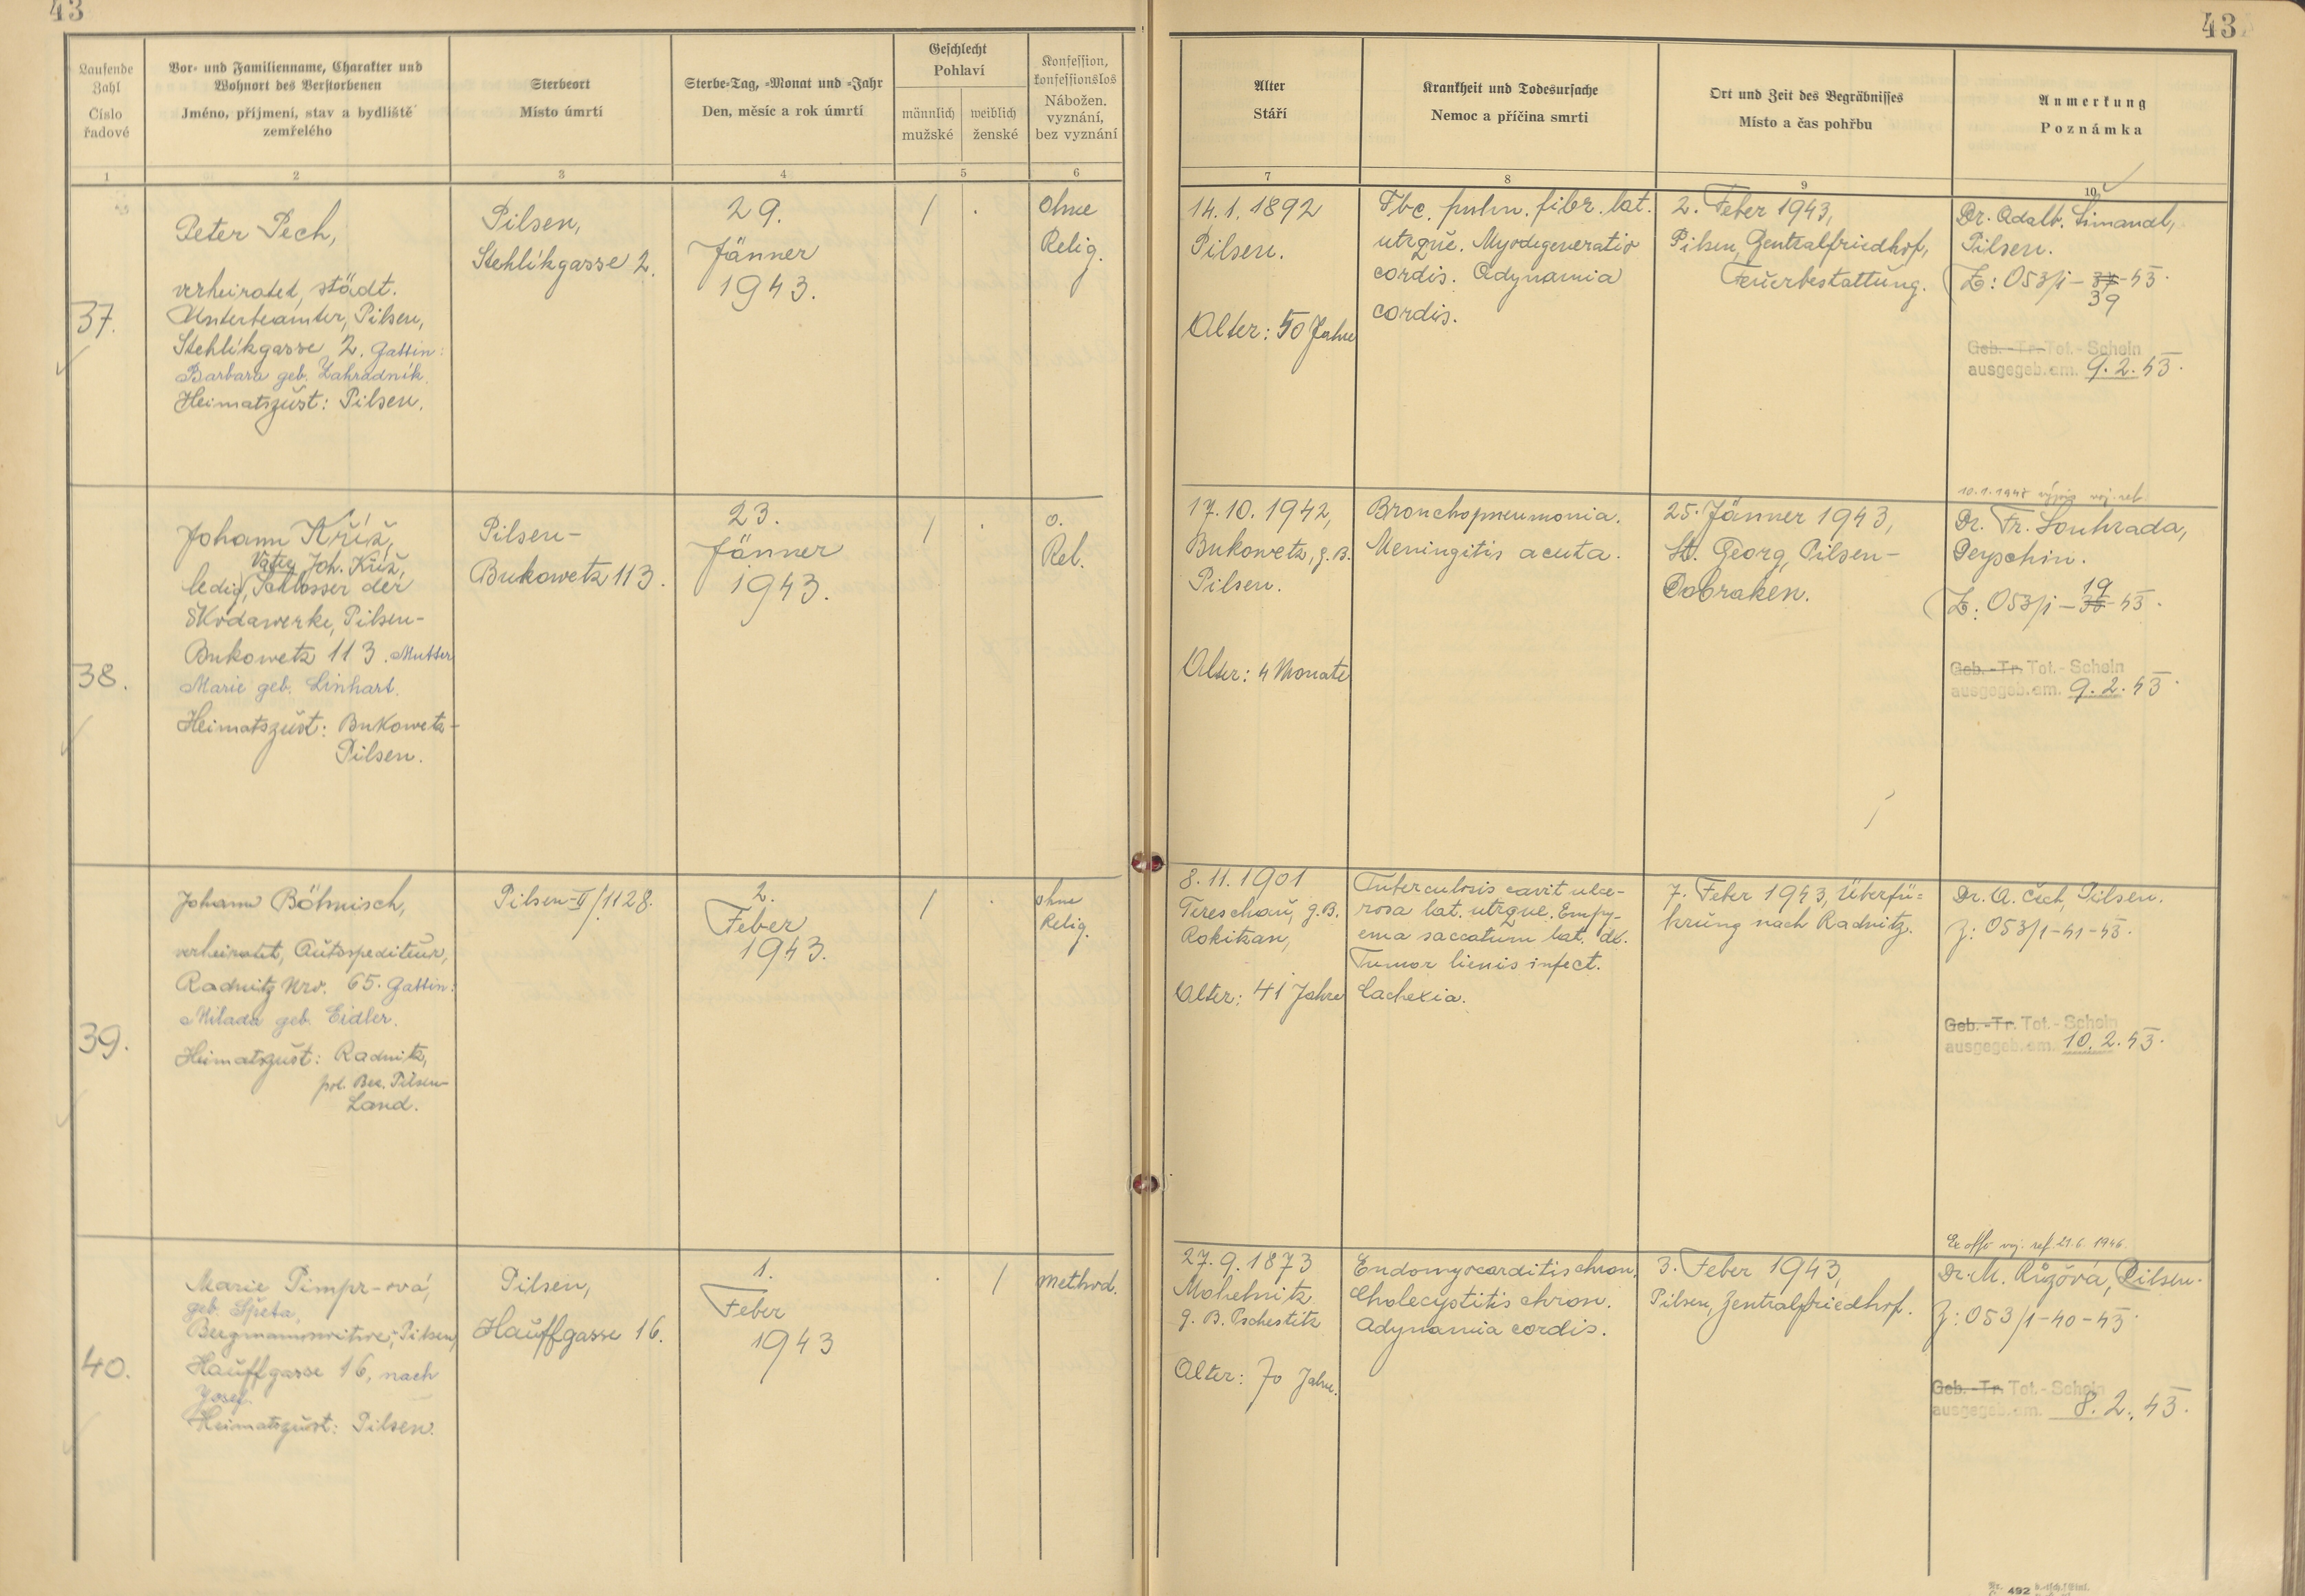 43
43
Laufende Zahl
Číslo řadové
Vor- und Familienname, Charakter und
Wohnort des Verstorbenen
Jméno, příjmení, stav a bydliště
zemřelého
Sterbeort
Místo úmrtí
Sterbe-Tag, -Monat und -Jahr
Den, měsíc a rok úmrtí
Geschlecht
Pohlaví
männlich
mužské
weiblich
ženské
Konfession,
konfessionslos
Nábožen.
vyznání,
bez vyznání
Alter
Stáří
Krankheit und Todesursache
Nemoc a příčina smrti
Ort und Zeit des Begräbnisses
Místo a čas pohřbu
Anmerkung
Poznámka
1 2 3 4 5 6 7 8 9 10
37.
Peter Pech,
verheiratet, städt.
Unterbeamter, Pilsen,
Stehlíkgasse 2. Gattin:
Barbara geb. Zahradník.
Heimatszust: Pilsen.
Pilsen,
Stehlíkgasse 2.
29.
Jänner
1943.
/ .
Ohne
Relig.
14.1.1892
Pilsen.
Alter: 50 Jahre
Tbc. pulm. fibr. lat.
utrque. Myodegeneratio
cordis. Adynamia
cordis.
2. Feber 1943,
Pilsen, Zentralfriedhof,
Feuerbestattung.
Dr. Adalb. Šimandl,
Pilsen.
Z: 053/1-37-43.
39
Geb.-Tr. Tot.-Schein
ausgegeb. am. 9.2.43.
38.
Johann Kříž,
Vater Joh. Kříž,
ledig, Schlosser der
Škodawerke, Pilsen-
Bukowetz 113. Mutter
Marie geb. Linhart.
Heimatszust: Bukowetz-
Pilsen.
Pilsen-
Bukowetz 113.
23.
Jänner
1943.
/ .
o.
Rel.
17.10.1942,
Bukowetz, g.B.
Pilsen.
Alter: 4 Monate
Bronchopneumonia.
Meningitis acuta.
25. Jänner 1943,
St. Georg, Pilsen-
Dobraken.
10.1.1945
Dr. Fr. Souhrada,
Deyschin.
19
Z: 053/1-38-43.
Geb.-Tr. Tot.-Schein
ausgegeb. am. 9.2.43.
39.
Johann Böhmisch,
verheiratet, Autospediteur,
Radnitz Nro. 65. Gattin:
Milada geb. Eidler.
Heimatszust: Radnitz,
pol. Bez. Pilsen-
Land.
Pilsen-II/1128.
2.
Feber
1943.
/ .
ohne
Relig.
8.11.1901
Tereschau, g.B.
Rokitzan,
Alter: 41 Jahre
Tuberculosis cavit ulce-
rosa lat. utrque. Empy-
ema saccatum lat. dx.
Tumor lienis infect.
Cachexia.
7. Feber 1943, Überfü-
hrung nach Radnitz.
Dr. A. Čech, Pilsen.
Z: 053/1-41-43.
Geb.-Tr. Tot.-Schein
ausgegeb. am. 10.2.43.
40.
Marie Pimpr-ová,
geb. Špeta,
Bergmannswitwe, Pilsen,
Hauffgasse 16, nach
Josef.
Heimatszust: Pilsen.
Pilsen,
Hauffgasse 16.
1.
Feber
1943
. /
method.
27.9.1873
Mohelnitz
g.B. Pschestitz
Alter: 70 Jahre.
Endomyocarditis chron.
Cholecystitis chron.
Adynamia cordis.
3. Feber 1943,
Pilsen, Zentralfriedhof.
Ex offo voj. ref. 21.6.1946.
Dr. M. Růžová, Pilsen.
Z: 053/1-40-43.
Geb.-Tr. Tot.-Schein
ausgegeb. am. 8.2.43.
492